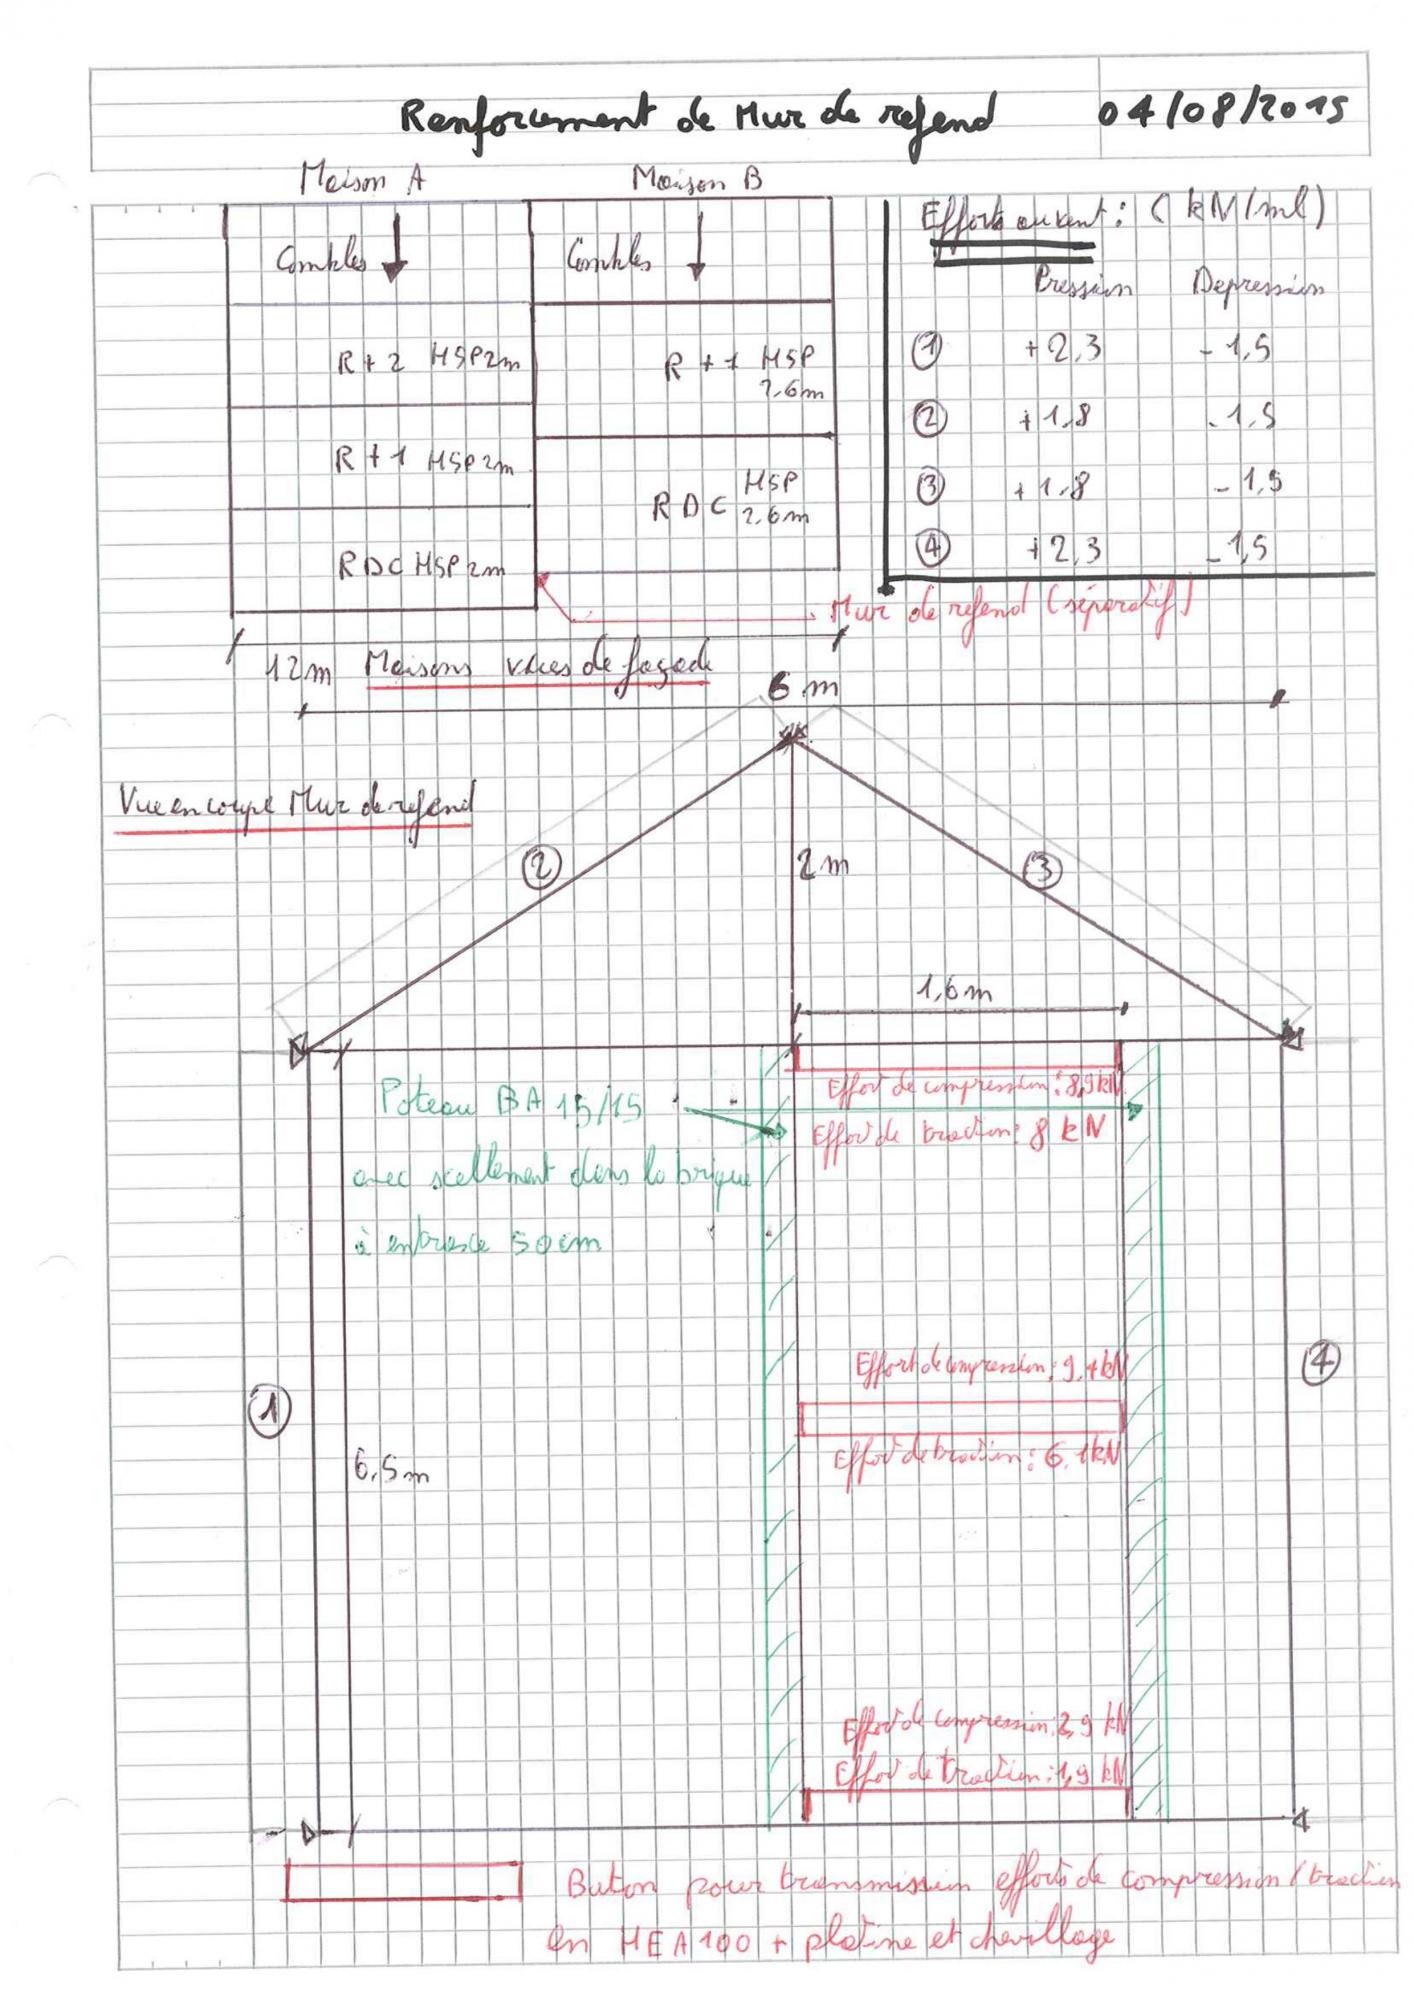 Renforcement de Mur de refend
04/08/2015
Maison A
Maison B
Combles
Combles
R+2 HSP 2m
R+1 HSP
2,6m
R+1 HSP 2m
RDC HSP
2,6m
RDC HSP 2m
Efforts au vent : ( kN/ml)
Pression Depression
1 +2,3 -1,5
2 +1,8 -1,5
3 +1,8 -1,5
4 +2,3 -1,5
Mur de refend (séparatif)
12m Maisons vues de façade
6 m
Vue en coupe Mur de refend
2
2m
3
1,6m
Effort de compression : 8,9kN
Effort de traction: 8 kN
Poteau BA 15/15
avec scellement dans la brique
à entraxe 50cm
Effort de compression: 9,4kN
1
4
Effort de traction: 6,1kN
6,5m
Effort de compression: 2,9 kN
Effort de traction: 1,9 kN
Buton pour transmission efforts de compression/traction
en HEA100 + platine et chevillage